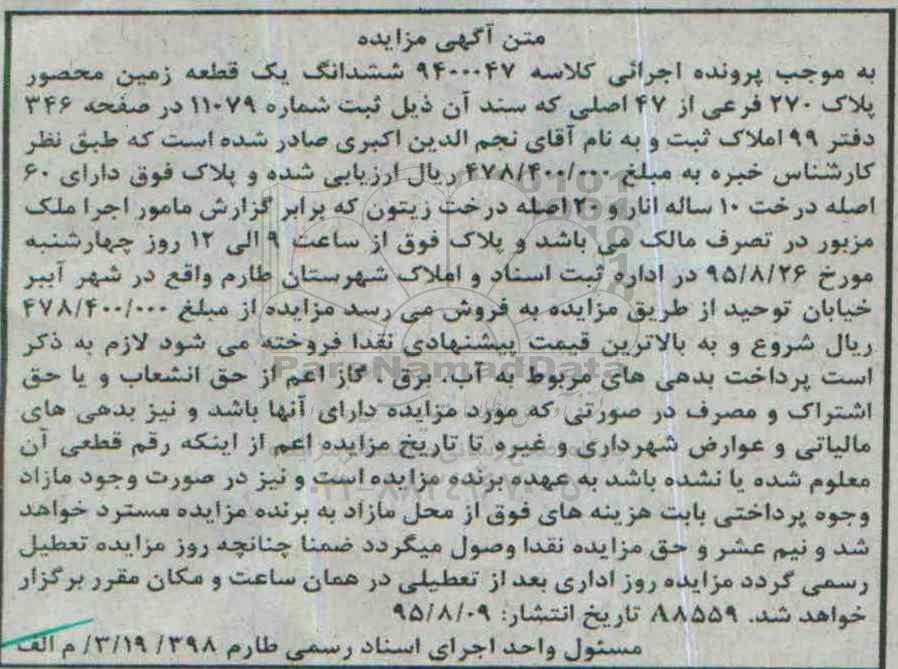 متن آگهی مزایده
به موجب پرونده اجرائی کلاسه ۹۴۰۰۰۴۷ ششدانگ یک قطعه زمین محصور
پلاک ۲۷۰ فرعی از ۴۷ اصلی که سند آن ذیل ثبت شماره ۱۱۰۷۹ در صفحه ۳۴۶
دفتر ۹۹ املاک ثبت و به نام آقای نجم الدین اکبری صادر شده است که طبق نظر
کارشناس خبره به مبلغ ۴۷۸/۴۰۰/۰۰۰ ریال ارزیابی شده و پلاک فوق دارای ۶۰
اصله درخت ۱۰ ساله انار و ۲۰ اصله درخت زیتون که برابر گزارش مامور اجرا ملک
مزبور در تصرف مالک می باشد و پلاک فوق از ساعت ۹ الی ۱۲ روز چهارشنبه
مورخ ۹۵/۸/۲۶ در اداره ثبت اسناد و املاک شهرستان طارم واقع در شهر آببر
خیابان توحید از طریق مزایده به فروش می رسد مزایده از مبلغ ۴۷۸/۴۰۰/۰۰۰
ریال شروع و به بالاترین قیمت پیشنهادی نقدا فروخته می شود لازم به ذکر
است پرداخت بدهی های مربوط به آب، برق ، گاز اعم از حق انشعاب و یا حق
اشتراک و مصرف در صورتی که مورد مزایده دارای آنها باشد و نیز بدهی های
مالیاتی و عوارض شهرداری و غیره تا تاریخ مزایده اعم از اینکه رقم قطعی آن
معلوم شده یا نشده باشد به عهده برنده مزایده است و نیز در صورت وجود مازاد
وجوه پرداختی بابت هزینه های فوق از محل مازاد به برنده مزایده مسترد خواهد
شد و نیم عشر و حق مزایده نقدا وصول میگردد ضمنا چنانچه روز مزایده تعطیل
رسمی گردد مزایده روز اداری بعد از تعطیلی در همان ساعت و مکان مقرر برگزار
خواهد شد. ۸۸۵۵۹ تاریخ انتشار: ۹۵/۸/۰۹
مسئول واحد اجرای اسناد رسمی طارم ۳۹۸/ ۳/۱۹/ م الف
ParsNamadData